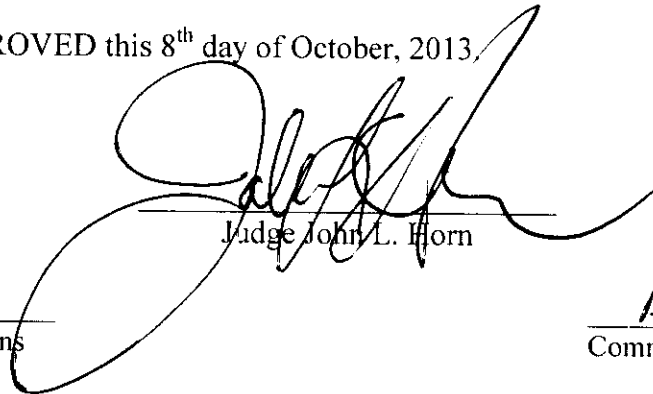 ROVED this 8th day of October, 2013.
Judge John L. Horn
ns
Comm